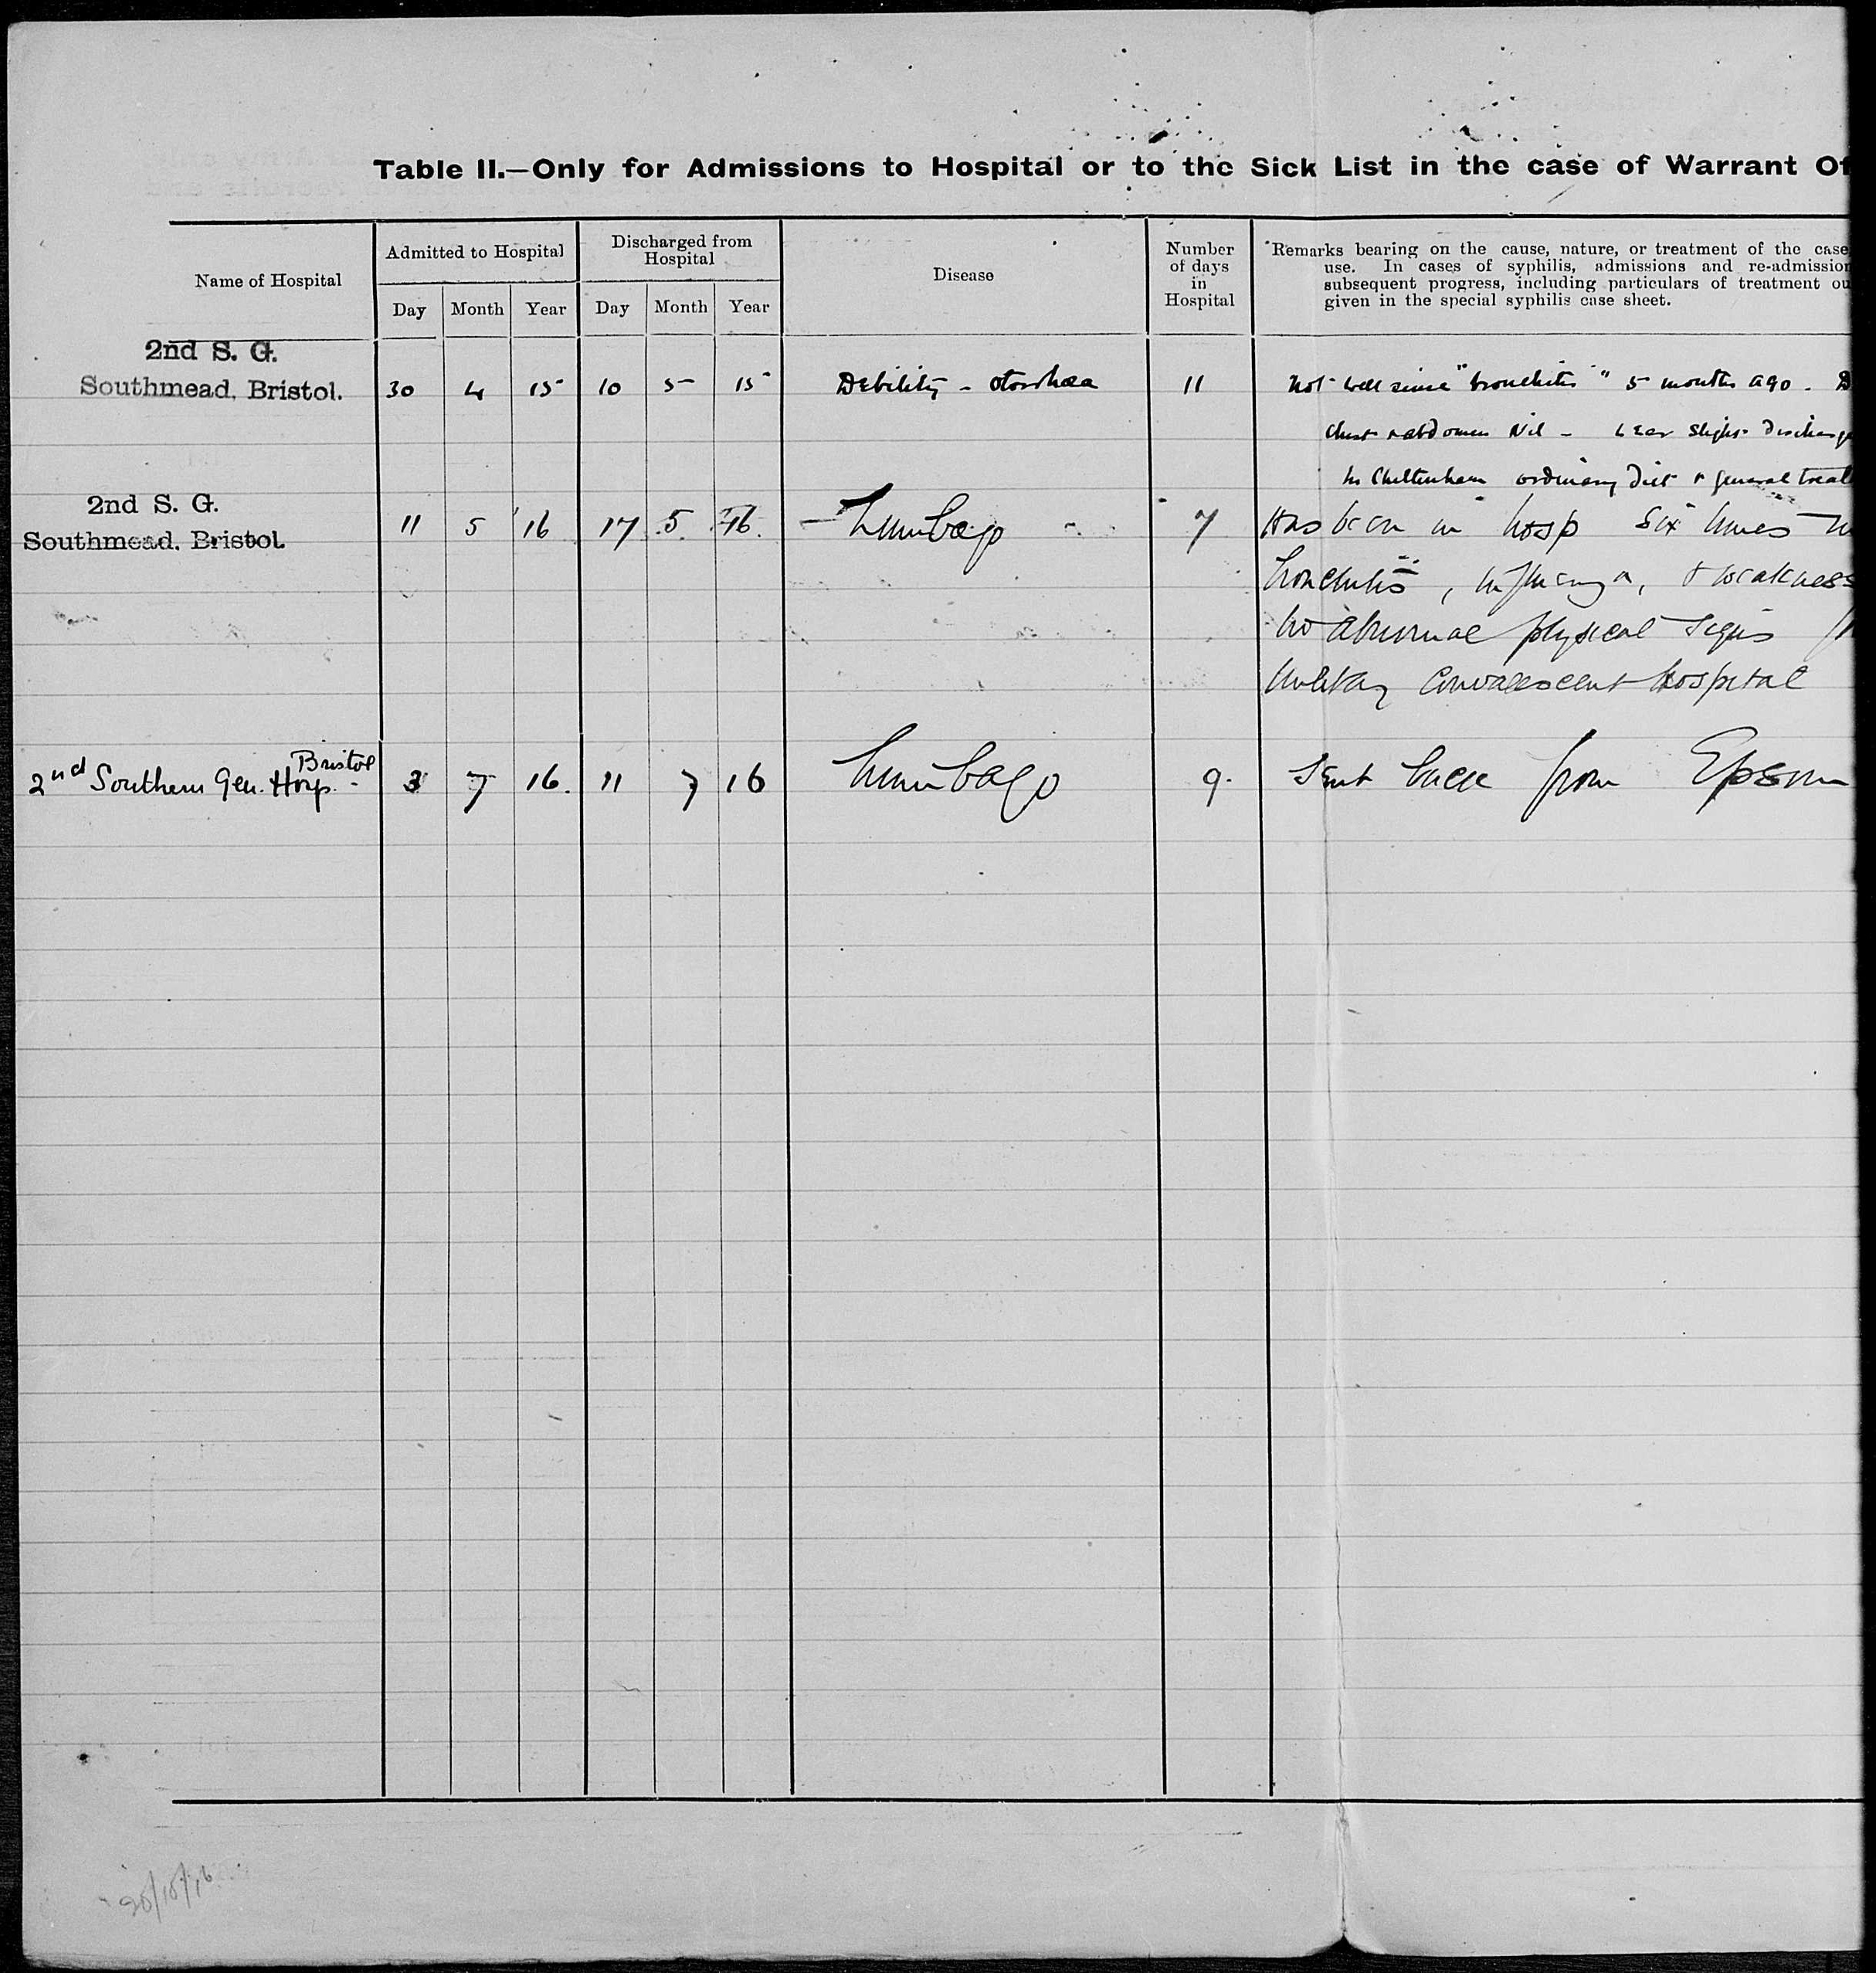 Table II.—Only for Admissions to Hospital or to the Sick List in the case of Warrant Of
Name of Hospital
Admitted to Hospital
Discharged from
Hospital
Disease
Number
of days
in
Hospital
Remarks bearing on the cause, nature, or treatment of the case
use. In cases of syphilis, admissions and re-admission
subsequent progress, including particulars of treatment ou
given in the special syphilis case sheet.
Day Month Year Day Month Year
2nd S. G.
Southmead, Bristol. 30 4 15 10 5 15 Debility - otorrhœa 11 Not well since "bronchitis" 5 months ago - D
Chest & abdomen Nil - L ear slight discharge
to Cheltenham ordinary Diet & general treat
2nd S. G.
Southmead, Bristol. 11 5 16 17 5 16 Lumbago 7 Has been in hosp six times
bronchitis, influenza, & weakness
No abnormal physical signs
Military Convalescent Hospital
2nd Southern Gen. Hosp. Bristol 3 7 16 11 7 16 Lumbago 9 Sent back from Epsom
20/10/16